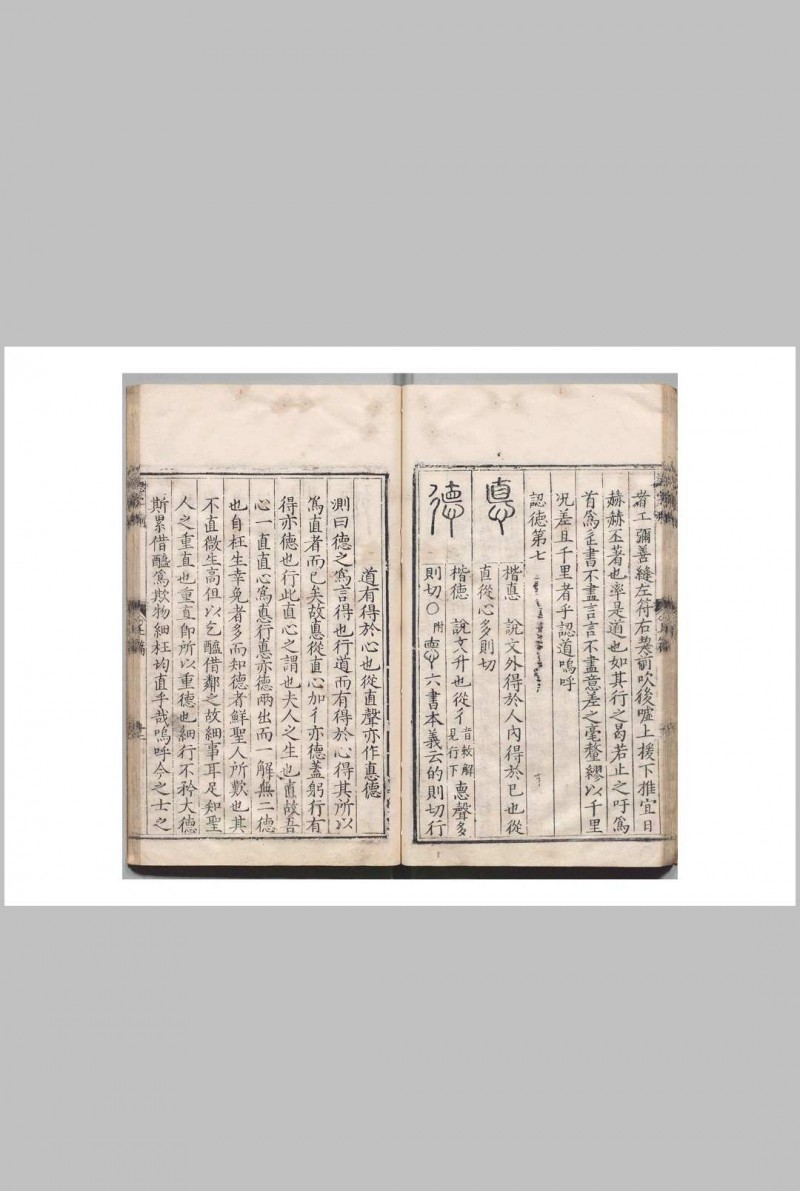 者工彌善縫左符右契前吹後噓上援下推宜日
赫赫丕著也率是道也如其行之曷若止之吁為
首為𤴓書不盡言言不盡意差之毫釐繆以千里
况差且千里者乎認道嗚呼
認德第七
悳
楷悳 說文外得於人內得於已也從
直從心多則切
德
楷德 說文升也從彳音敕解見行下悳聲多
則切○附 六書本義云的則切行
道有得於心也從直聲亦作惪德
測曰德之為言得也行道而有得於心得其所以
為直者而已矣故悳從直心加彳亦德蓋躬行有
得亦德也行此直心之謂也夫人之生也直故吾
心一直直心為悳行悳亦德兩出而一解無二德
也自枉生幸免者多而知德者鮮聖人所歎也其
不直微生高但以乞醯借鄰之故細事耳足知聖
人之重直也重直即所以重德也細行不矜大德
斯累借醯為欺物細枉均直乎哉嗚呼今之士之